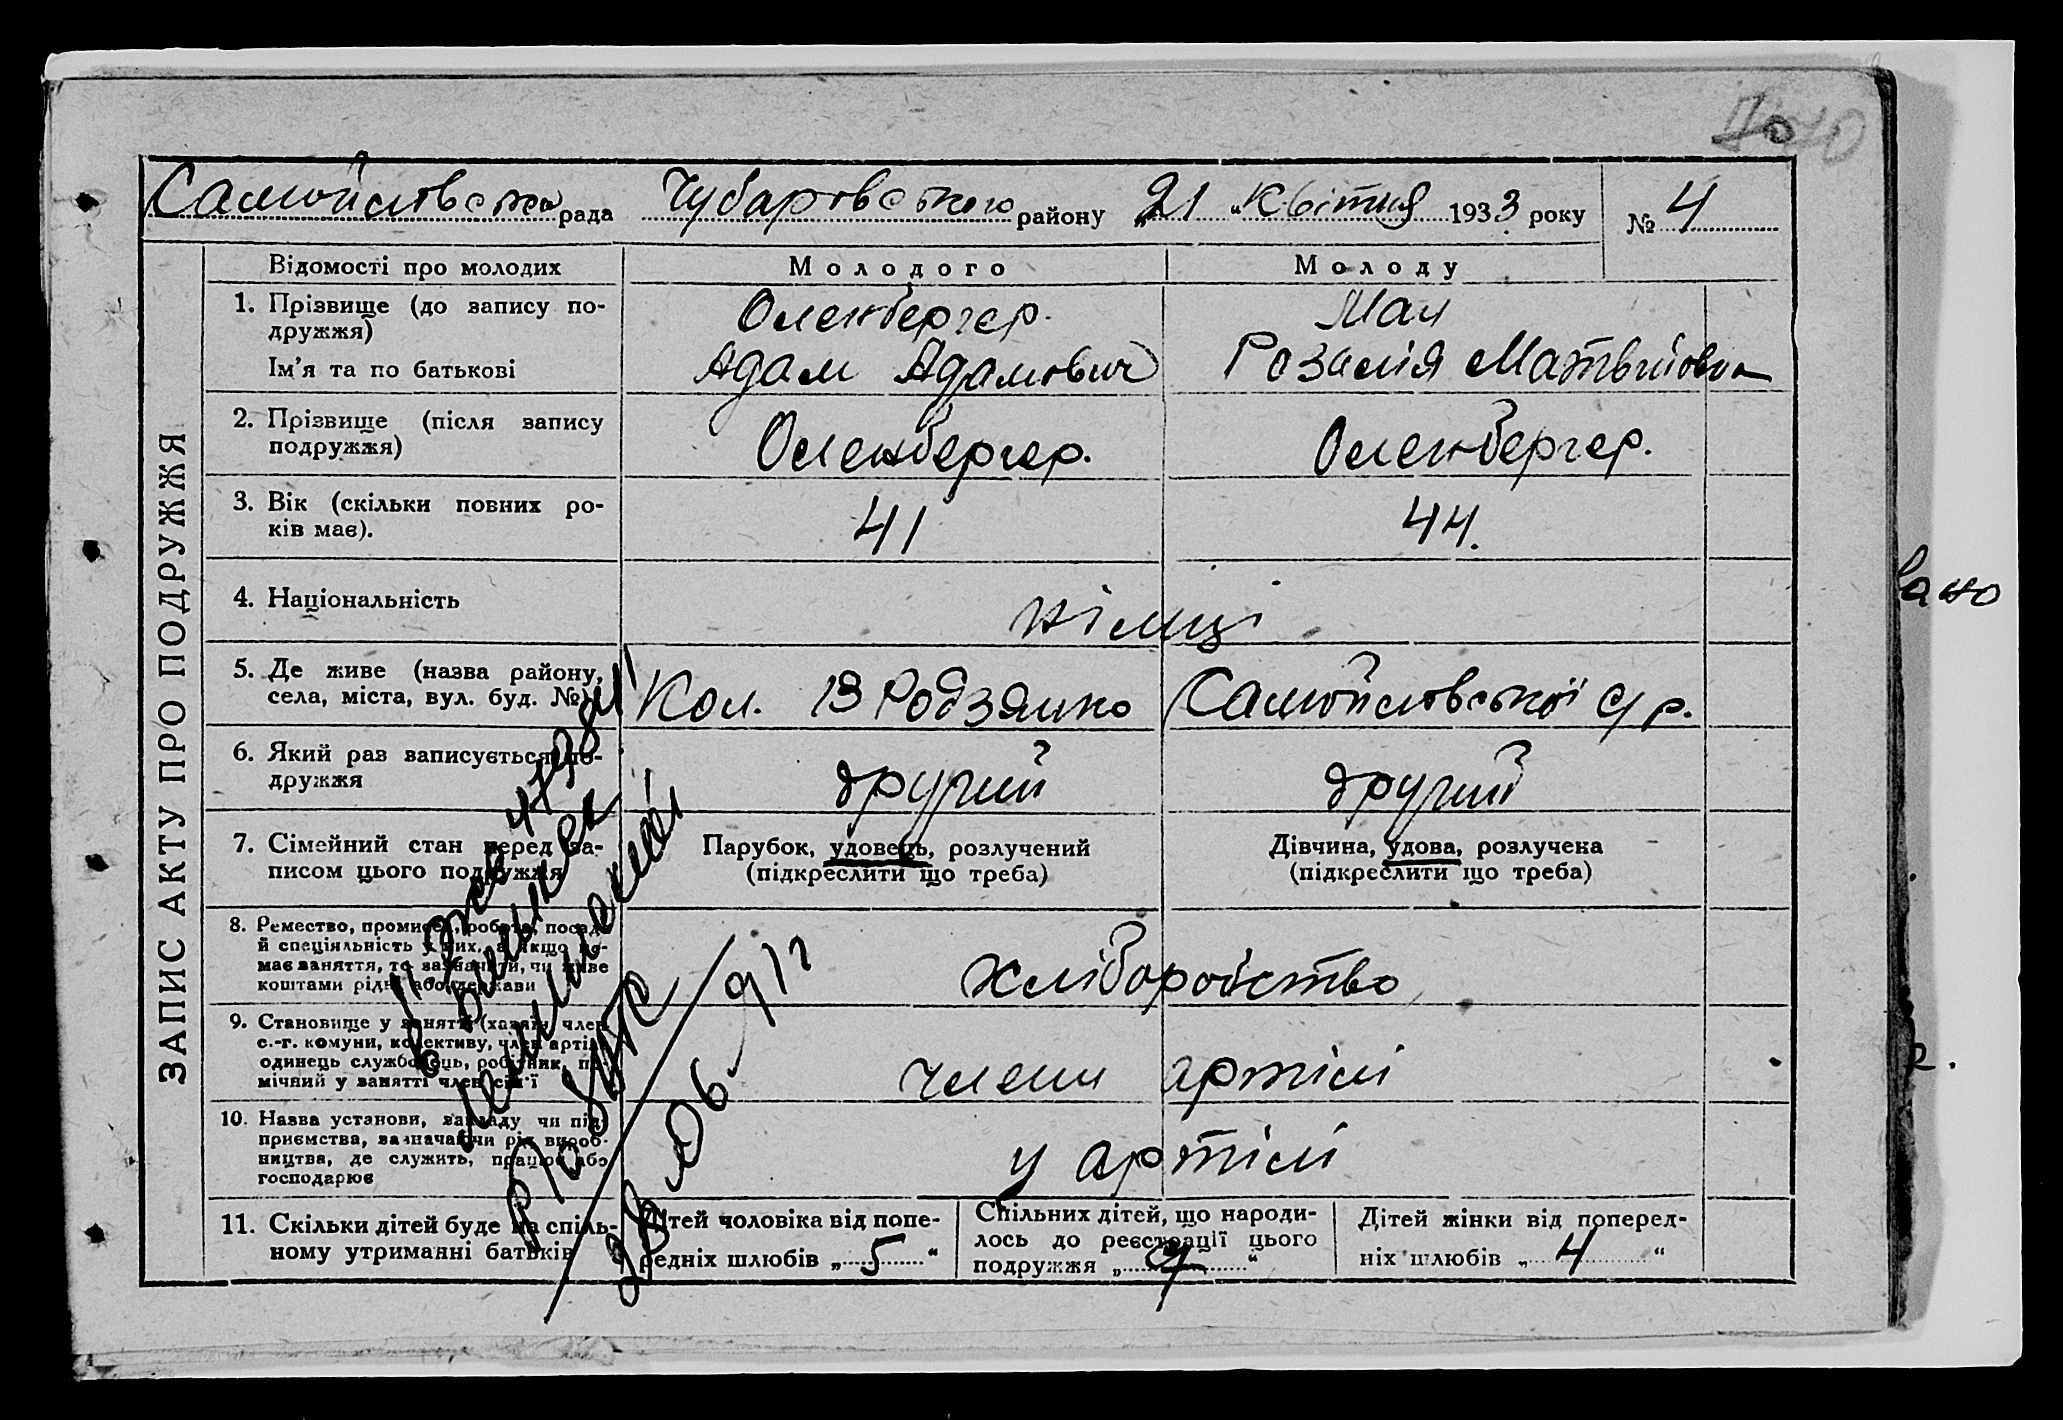 40
Самойловська рада Чубаровського району „21 “ Квітня 1933 року № 4
ЗАПИС АКТУ ПРО ПОДРУЖЖЯ
Відомості про молодих Молодого Молоду
1. Прізвище (до запису по-
дружжя)
Оленбергер. Мал
Ім'я та по батькові Адам Адамович Розалія Матвійовна
2. Прізвище (після запису
подружжя)
Оленбергер. Оленбергер.
3. Вік (скільки повних ро-
ків має).
41 44.
4. Національність німці
5. Де живе (назва району,
села, міста, вул. буд. №)
Кол. 13 Родзянко Самойловської с/р.
6. Який раз записується по-
дружжя
другий другий
7. Сімейний стан перед за-
писом цього подружжя
Парубок, удовець, розлучений
(підкреслити що треба)
Дівчина, удова, розлучена
(підкреслити що треба)
8. Ремество, промисел, робота, посада
й спеціяльність у них, а якщо не-
має заняття, то зазначити, чи живе
коштами рідні або держави
хліборобство
9. Становище у занятті (хазяїн, член
с.-г. комуни, колективу, член артілі
одинець службовець, робітник, по-
мічний у занятті член сім'ї
члени артілі
10. Назва установи, закладу чи під-
приємства, зазначаючи рід вироб-
ництва, де служить, працює або
господарює
у артілі
11. Скільки дітей буде на спіль-
ному утриманні батьків
Дітей чоловіка від попе-
редніх шлюбів „ 5 “
Спільних дітей, що народи-
лось до реєстрації цього
подружжя „ “
Дітей жінки від поперед-
ніх шлюбів „ 4 “